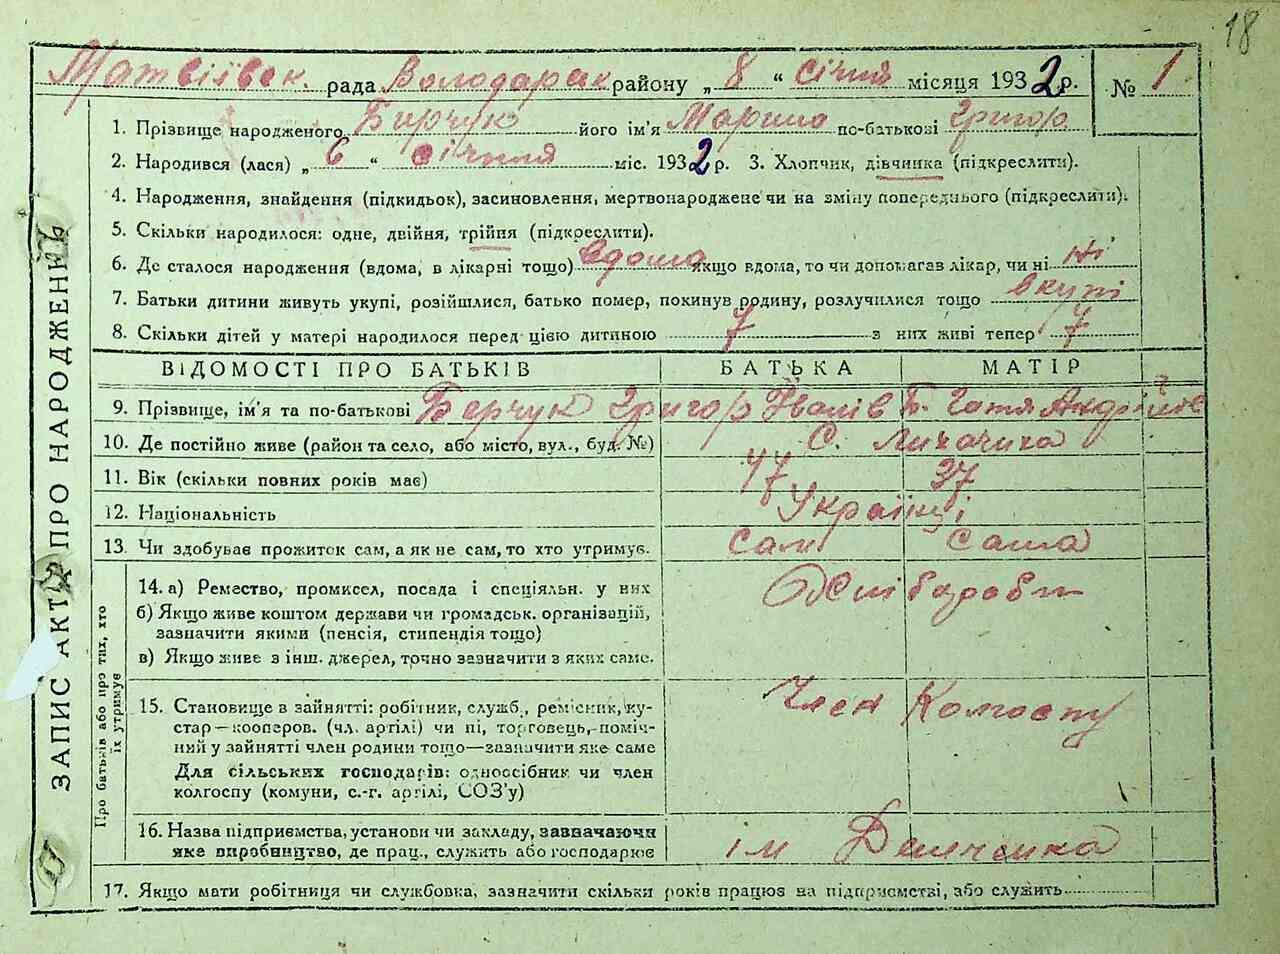 18
Матвіївск. рада Володарск району „ 8 “ січня місяця 1932 р. № 1
1. Прізвище народженого Бирчук його ім'я Марина по-батькові Григор
2. Народився (лася) „ 6 “ січння міс. 1932 р. 3. Хлопчик, дівчинка (підкреслити).
4. Народження, знайдення (підкидьок), засиновлення, мертвонароджене чи на зміну попереднього (підкреслити).
5. Скільки народилося: одне, двійня, трійня (підкреслити).
6. Де сталося народження (вдома, в лікарні тощо) вдома якщо вдома, то чи допомагав лікар, чи ні ні
7. Батьки дитини живуть укупі, розійшлися, батько помер, покинув родину, розлучилися тощо вкупі
8. Скільки дітей у матері народилося перед цією дитиною 7 з них живі тепер 7
ВІДОМОСТІ ПРО БАТЬКІВ БАТЬКА МАТІР
9. Прізвище, ім'я та по-батькові Берчук Григор Б. Гатя Андріїв
10. Де постійно живе (район та село, або місто, вул., буд. №) С. Лихачиха
11. Вік (скільки повних років має) 47 37
12. Національність Українці
13. Чи здобуває прожиток сам, а як не сам, то хто утримує. сам сама
14. а) Ремество, промисел, посада і спеціяльн. у них
б) Якщо живе коштом держави чи громадськ. організацій,
зазначити якими (пенсія, стипендія тощо)
в) Якщо живе з інш. джерел, точно зазначити з яких саме.
15. Становище в зайнятті: робітник, служб., ремісник, ку-
стар—кооперов. (чл. артілі) чи ні, торговець, поміч-
ний у зайнятті член родини тощо—зазначити яке саме
Член Колгоспу
Для сільських господарів: одноосібник чи член
колгоспу (комуни, с.-г. артілі, СОЗ'у)
16. Назва підприємства, установи чи закладу, зазначаючи
яке виробництво, де прац., служить або господарює
ім Демченка
17. Якщо мати робітниця чи службовка, зазначити скільки років працює на підприємстві, або служить
ЗАПИС АКТУ ПРО НАРОДЖЕННЬ
Про батьків або про тих, хто
їх утримує